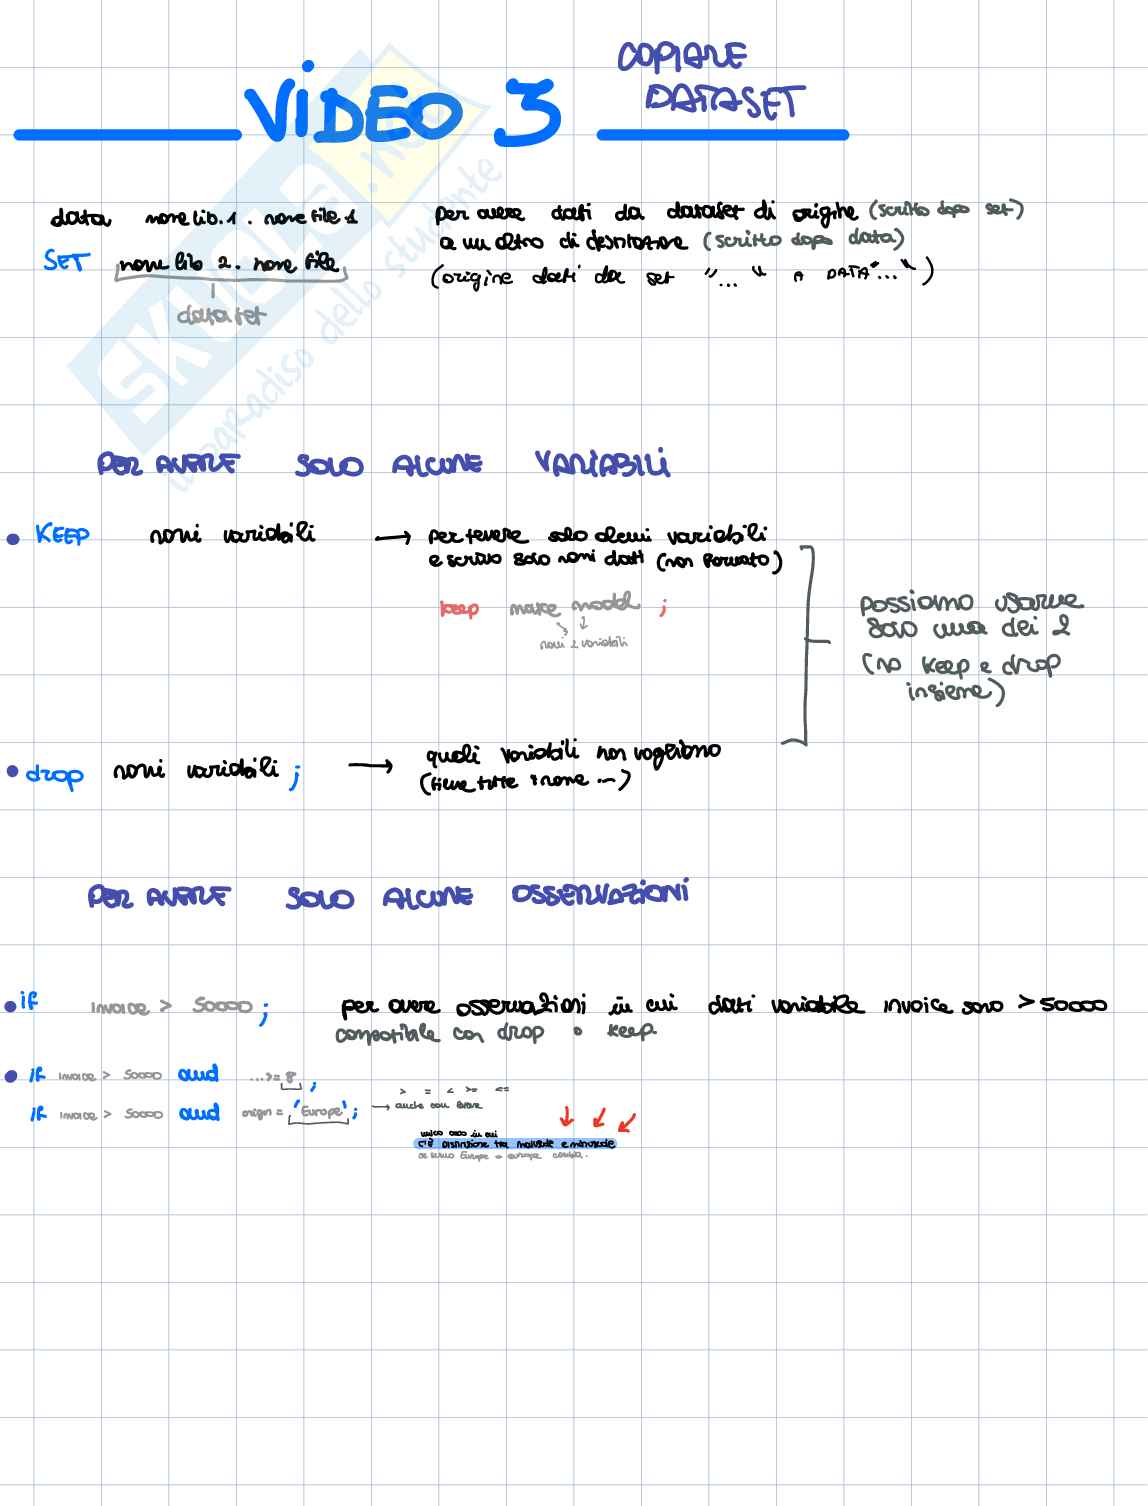 COPIARE
DATASET
VIDEO 3
data nome lib.1 . nome file 1
SET nome lib 2. nome file
dataset
per avere dati da dataset di origine (scritto dopo set)
a un altro di destinazione (scritto dopo data)
(origine dati da set "..." A DATA "...")
SKUOLA.net
il paradiso dello studente
PER AVERE SOLO ALCUNE VARIABILI
• KEEP nomi variabili → per tenere solo alcuni variabili
e scrivo solo nomi dati (non formato)
keep make model ;
nomi 2 variabili
possiamo usarne
solo una dei 2
(no keep e drop
insieme)
• drop nomi variabili ; → quali variabili non vogliamo
(tiene tutte tranne ...)
PER AVERE SOLO ALCUNE OSSERVAZIONI
• if invoice > 50000 ; per avere osservazioni in cui dati variabile invoice sono > 50000
compatibile con drop o keep
• if invoice > 50000 and ...>= 8 ;
> = < >= <=
if invoice > 50000 and origin = 'Europe' ; → anche con
unico caso in cui
c'è distinzione tra maiuscole e minuscole
se scrivo Europe o europe cambia.